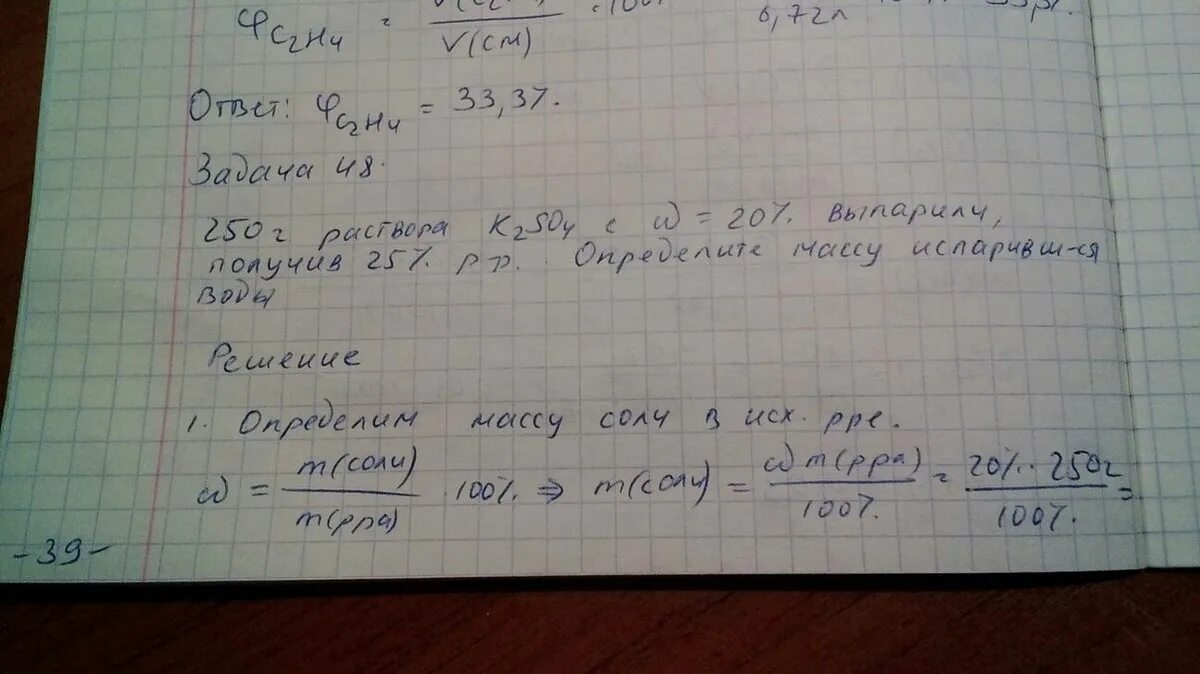 φC₂H₄ = / V(см) 6,72л
Ответ: φC₂H₄ = 33,3%.
Задача 48.
250г раствора K₂SO₄ с ω = 20%. выпарили,
получив 25%. р-р. Определите массу испаривш-ся
воды
Решение
1. Определим массу соли в исх. рре.
ω = m(соли) / m(рра) 100%. ⇒ m(соли) = ω m(рра) / 100%. = 20%. · 250г / 100%. =
-39-